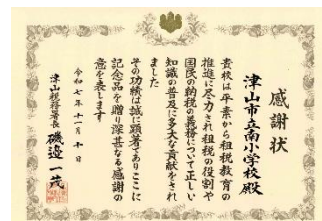 感謝状
津山市立南小学校殿
貴校は平素から租税教育の
推進に尽力され租税の役割や
国民の納税の義務について正しい
知識の普及に多大な貢献をされ
ました
その功績は誠に顕著でありここに
記念品を贈り深甚なる感謝の
意を表します
令和七年十一月十日
津山税務署長 磯邉一茂